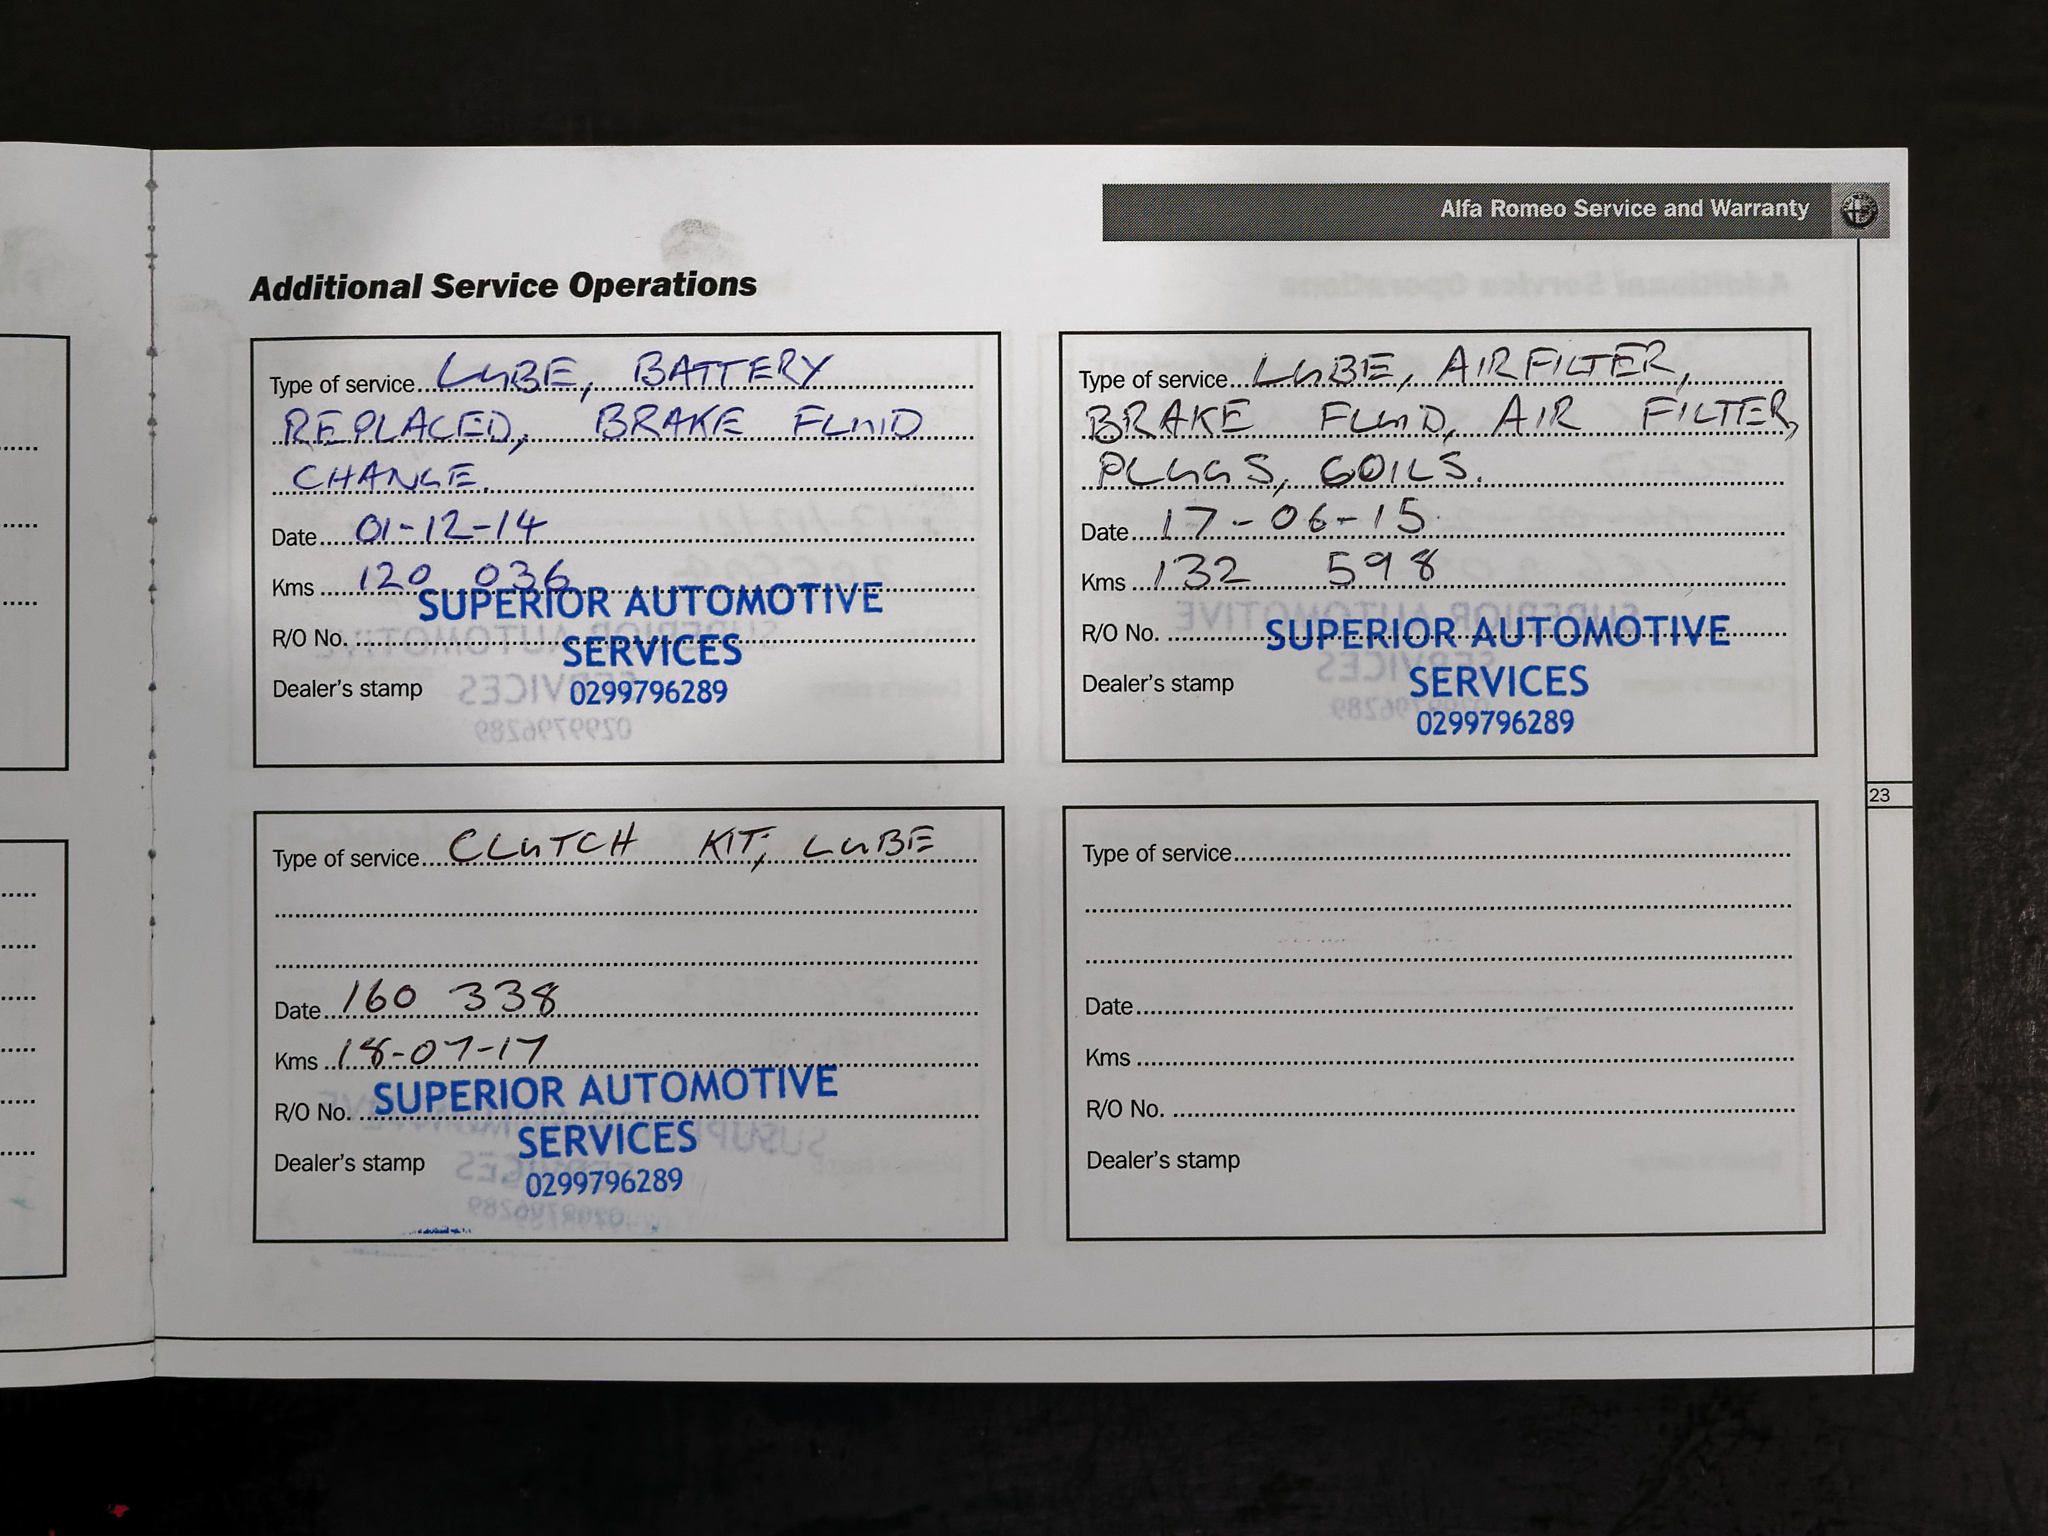 Alfa Romeo Service and Warranty
Additional Service Operations
Type of service LUBE, BATTERY
REPLACED, BRAKE FLUID
CHANGE.
Date 01-12-14
Kms 120 036
R/O No.
Dealer's stamp
SUPERIOR AUTOMOTIVE
SERVICES
0299796289
Type of service LUBE, AIRFILTER,
BRAKE FLUID, AIR FILTER,
PLUGS, COILS.
Date 17-06-15
Kms 132 598
R/O No.
Dealer's stamp
SUPERIOR AUTOMOTIVE
SERVICES
0299796289
23
Type of service CLUTCH KIT, LUBE
Date 160 338
Kms 18-07-17
R/O No.
Dealer's stamp
SUPERIOR AUTOMOTIVE
SERVICES
0299796289
Type of service
Date
Kms
R/O No.
Dealer's stamp